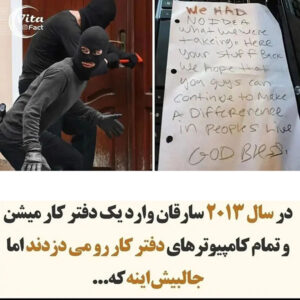 Vita
Fact
WE HAD
NO IDEA
what we were
takeing. Here
Your stuff Back
We Hope that
you guys can
continue to Make
A Difference
in People's Live
GOD BLESS
در سال ۲۰۱۳ سارقان وارد یک دفتر کار میشن
و تمام کامپیوترهای دفتر کار رو می دزدند اما
جالبیش اینه که...